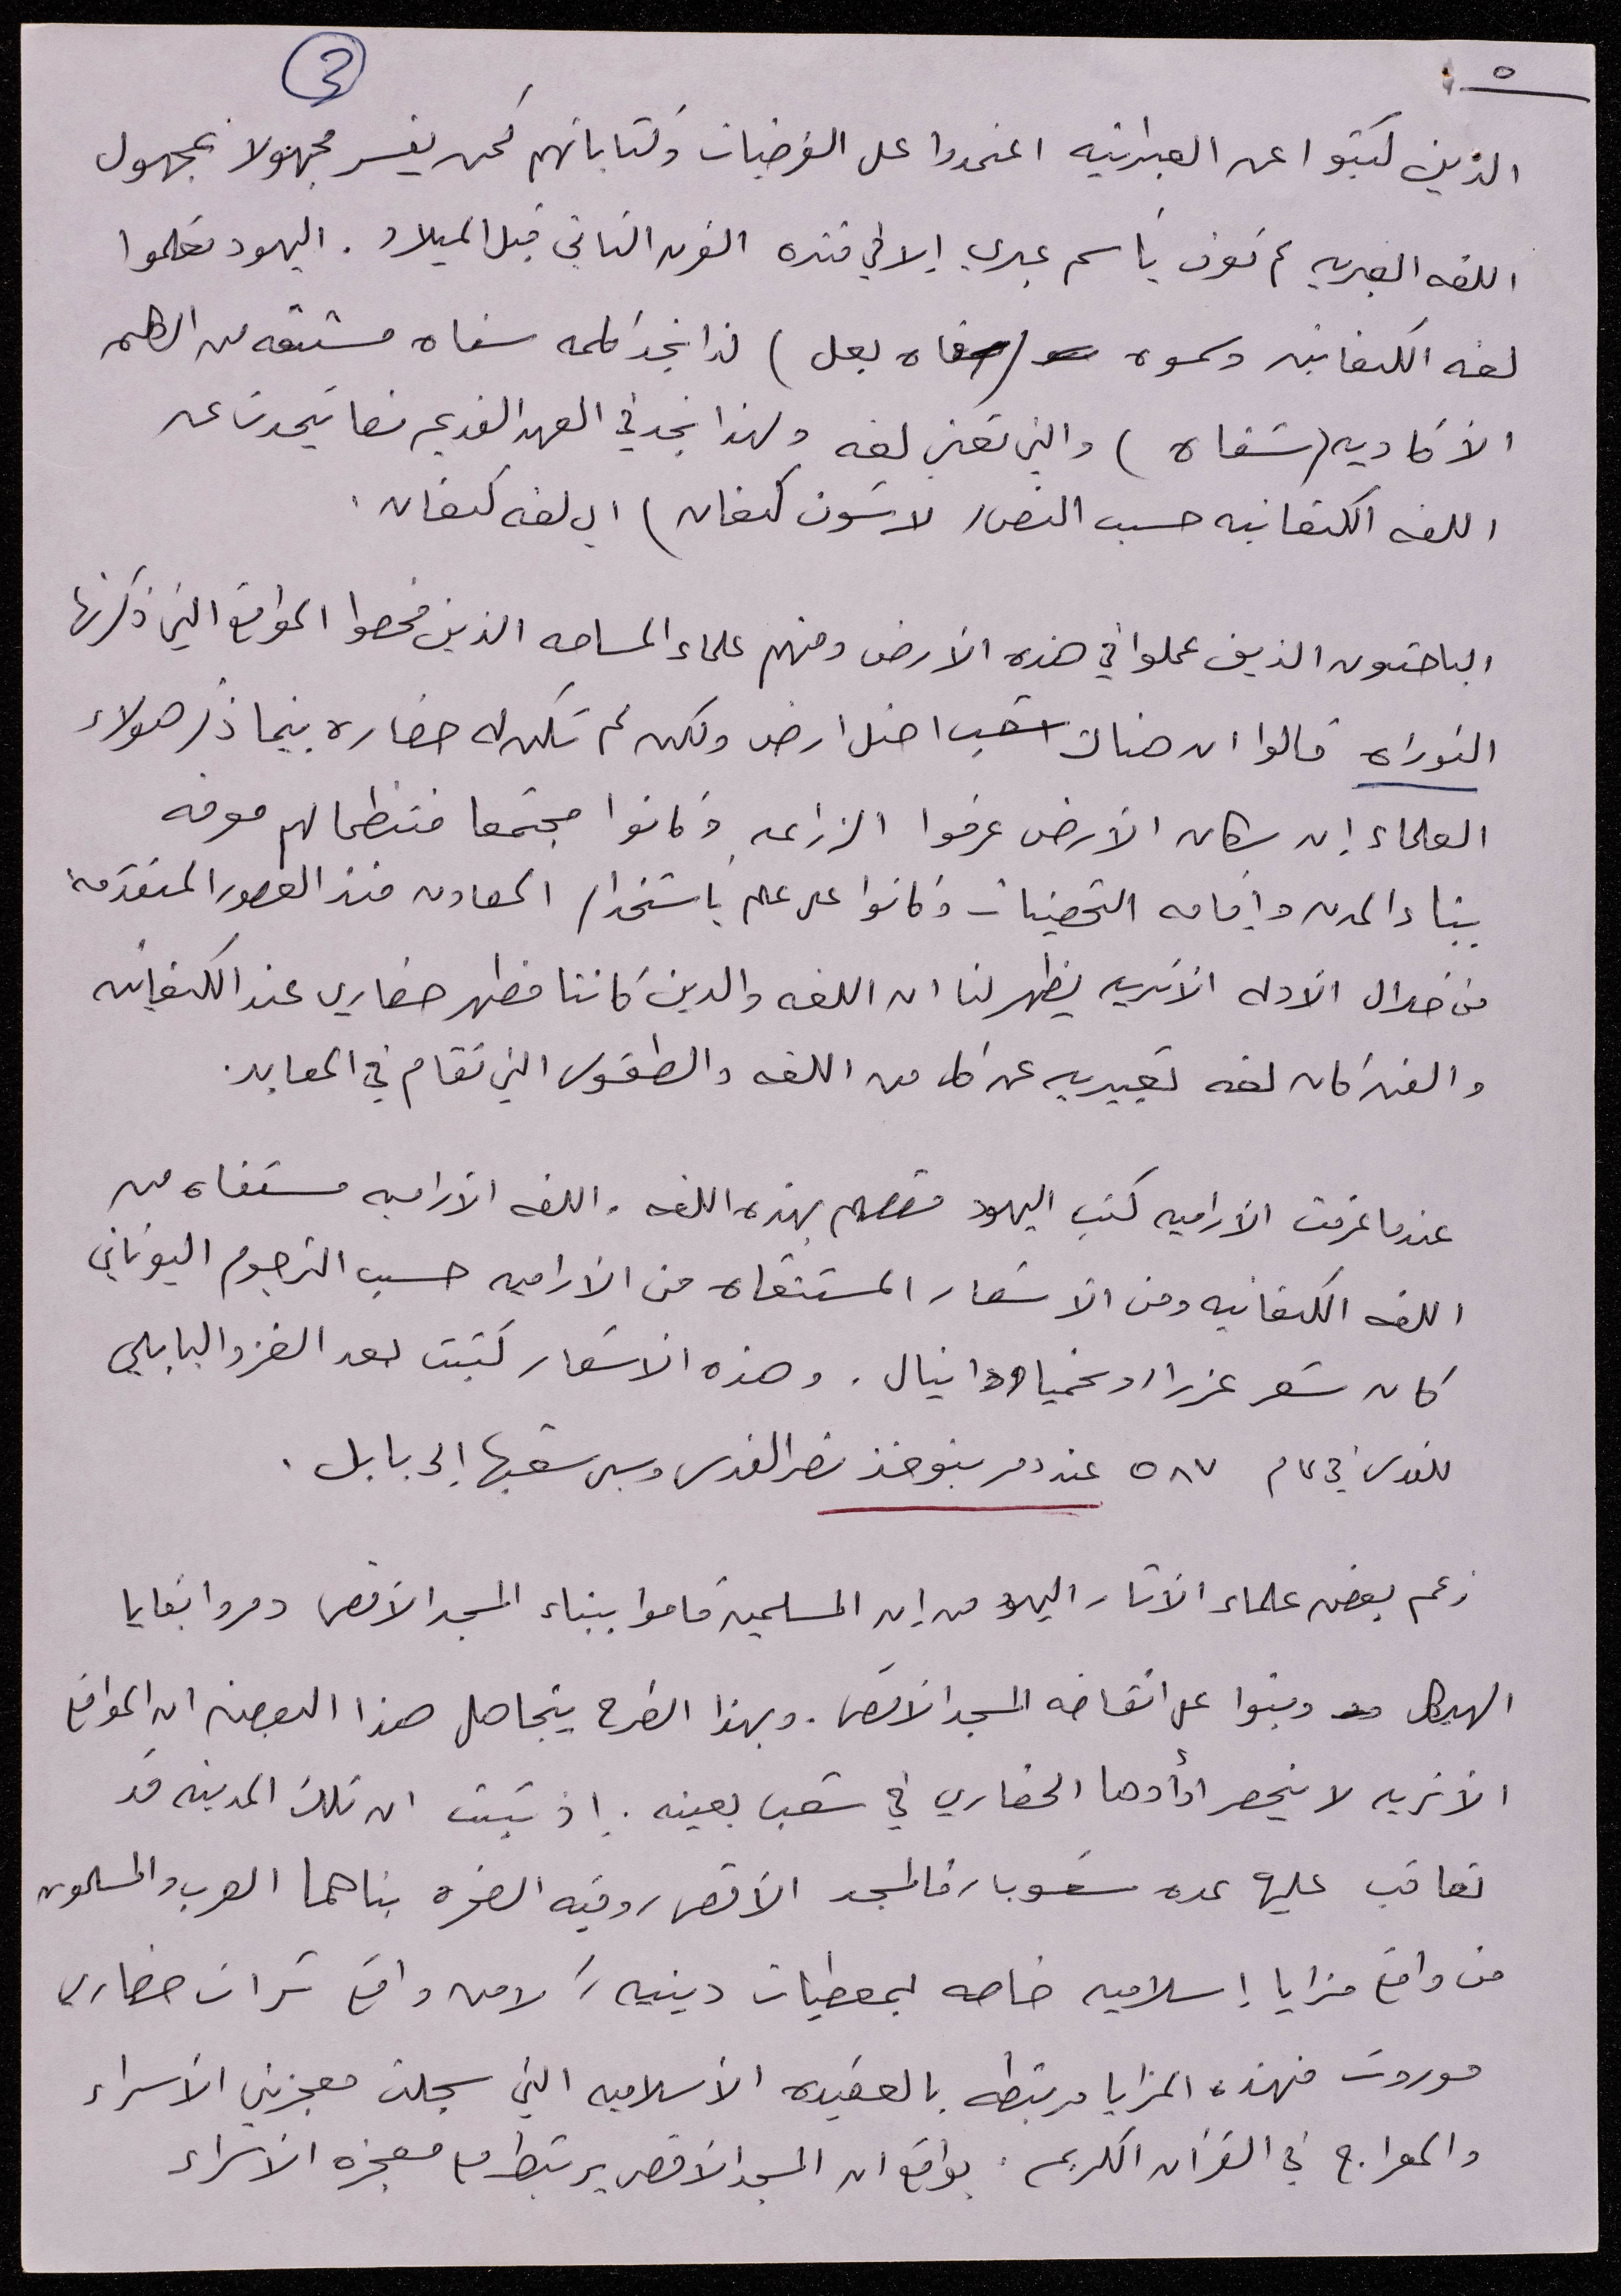 3
٥
الذين كتبوا عن العبرانيه اعتمدوا على الفرضيات وكتاباتهم كمن يفسر مجهولا بمجهول
اللغه العبريه لم تعرف باسم عبري إلا في فتره القرن الثاني قبل الميلاد . اليهود تعلموا
لغه الكنعانين وسموه (سفاه بعل) لذا نجد كلمه سفاه مشتقه من الكلمه
الأكاديه (شفاه) والتي تعني لغه ولهذا نجد في العهد القديم نصا يتحدث عن
اللغه الكنعانيه حسب النص (لاشون كنعان) اي لغه كنعان .
الباحثون الذين عملوا في هذه الأرض ومنهم علماء المساحه الذين فحصوا المواقع التي ذكرتها
التوراه قالوا ان هناك شعب احتل ارض ولكن لم تكن له حضاره بينما ذكر هولاء
العلماء إن سكان الأرض عرفوا الزراعه وكانوا مجتمعا منتظما لهم معرفه
ببناء المدن وإقامه التحصينات وكانوا على علم باستخدام المعادن منذ العصور المتقدمة
من خلال الأدله الأثريه يظهر لنا ان اللغه والدين كانتا مظهر حضاري عند الكنعانين
والفن كان لغه تعبيريه عن كل من اللغه والطقوس التي تقام في المعابد .
عندما عرفت الأراميه كتب اليهود قصصهم بهذه اللغه . اللغه الأراميه مستقاه من
اللغه الكنعانيه ومن الاسفار المستقاه من الأراميه حسب الترجوم اليوناني
كان سفر عزرا ونحميا ودانيال . وهذه الاسفار كتبت بعد الغزو البابلي
للقدس في عام ٥٨٧ عند دمر بنوخذ نصر القدس وسبى شعبها إلى بابل .
زعم بعض علماء الأثار اليهود من إن المسلمين قاموا ببناء المسجد الأقصى دمروا بقايا
الهيكل وبنوا على انقاضه المسجد الأقصى . وبهذا الطرح يتجاهل هذا البعض ان المواقع
الأثريه لا ينحصر أدأوها الحضاري في شعب بعينه . إذ ثبت ان تلك المدينه قد
تعاقب عليها عده شعوب، فالمسجد الأقصى وقبه الصخره بناهما العرب والمسلمون
من واقع مزايا إسلاميه خاصه بمعطيات دينيه لا من واقع تراث حضاري
موروث فهذه المزايا مرتبطه بالعقيده الأسلاميه التي سجلت معجزتي الأسراء
والمعراج في القرأن الكريم . بواقع ان المسجد الأقصى يرتبط مع معجزه الأسراء